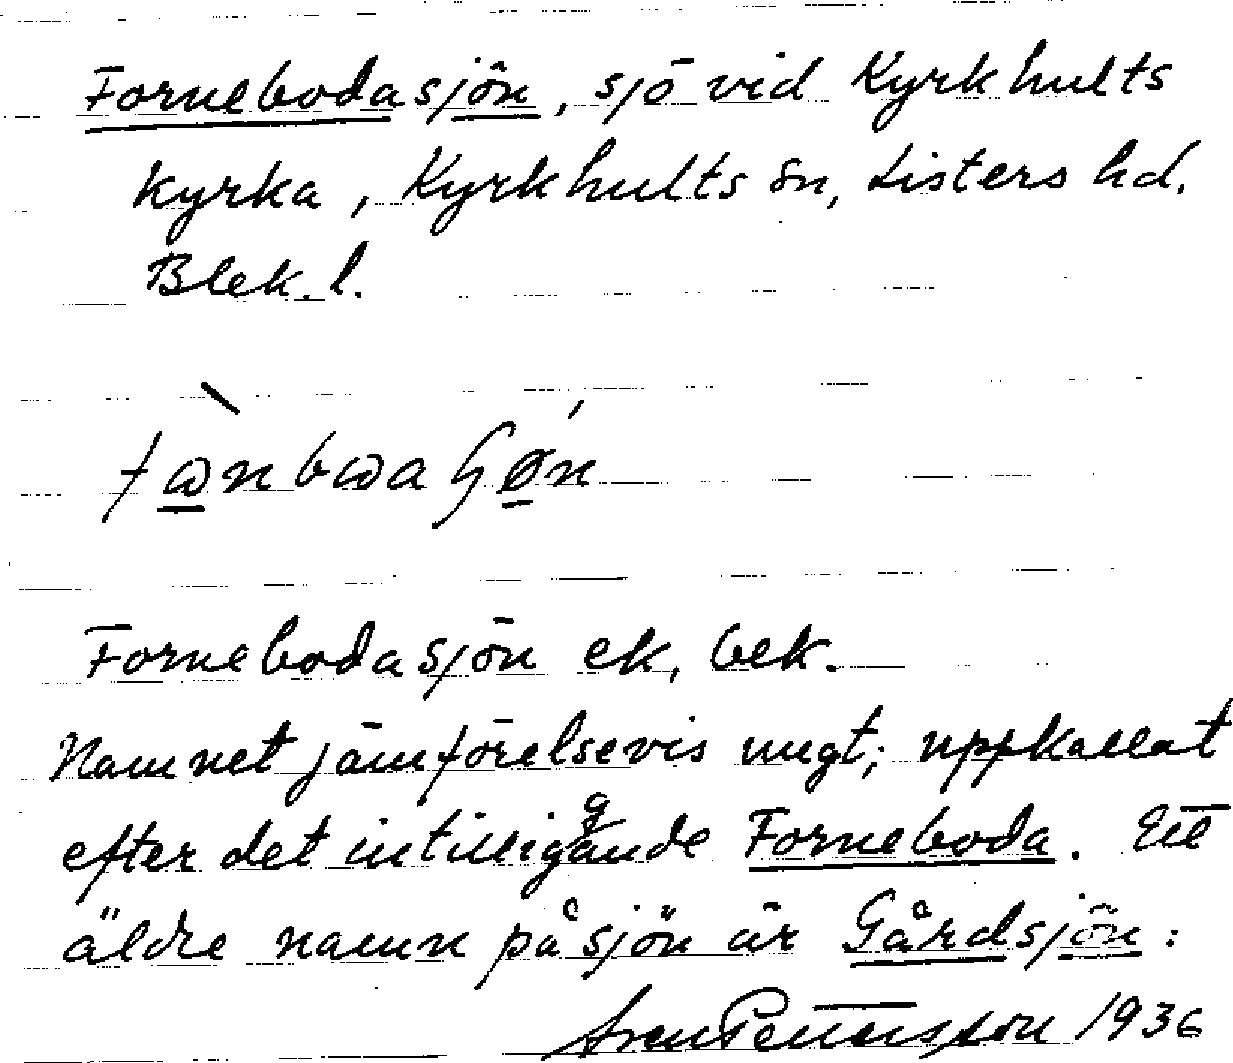 Fornebodasjön, sjö vid Kyrkhults
kyrka, Kyrkhults sn, Listers hd.
Blek. l.
Fornebodasjön ek, bek.
Namnet jämförelsevis ungt; uppkallat
efter det intilliggande Forneboda. Ett
äldre namn på sjön är Gårdsjön:
Pettersson 1936